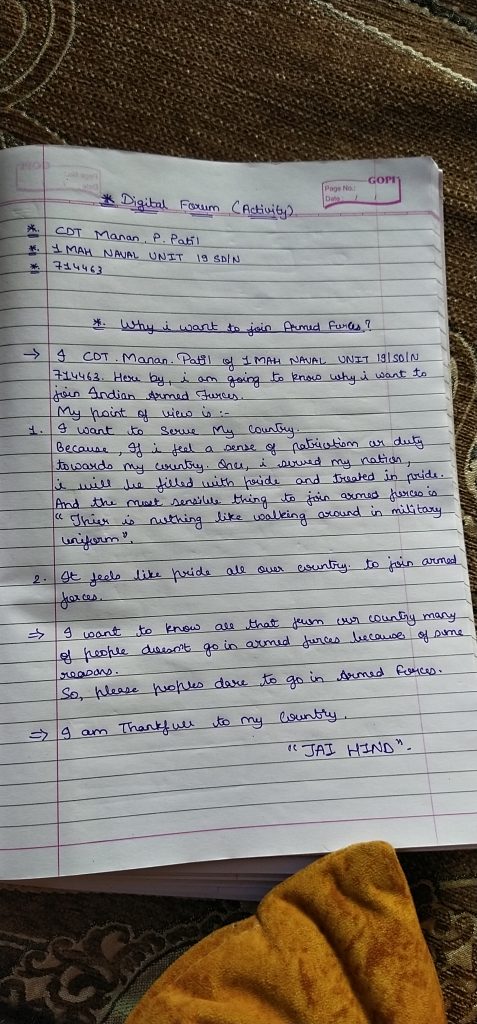 GOPI
Page No.:
Date: / /
* Digital Forum (Activity)
* CDT Manan. P. Patil
* 1 MAH NAVAL UNIT 19 SD/N
* 714463
*. Why i want to join Armed Furces?
→ I CDT. Manan. Patil of 1 MAH NAVAL UNIT 19/SD/N
714463. Here by, i am going to know why i want to
join Indian Armed Furces.
My point of view is :-
1. I want to serve My Country.
Because, If i feel a sense of patriotism or duty
towards my country. Once, i served my nation,
i will be filled with pride and treated in pride.
And the most sensible thing to join armed furces is
" Thier is nuthing like walking around in military
uniform".
2. It feels like pride all over country. to join armed
forces.
⇒ I want to know all that frum our country many
of people duesn't go in armed furces because of sume
reasons.
So, please peoples dare to go in Armed Forces.
⇒ I am Thankfull to my Country.
" JAI HIND".